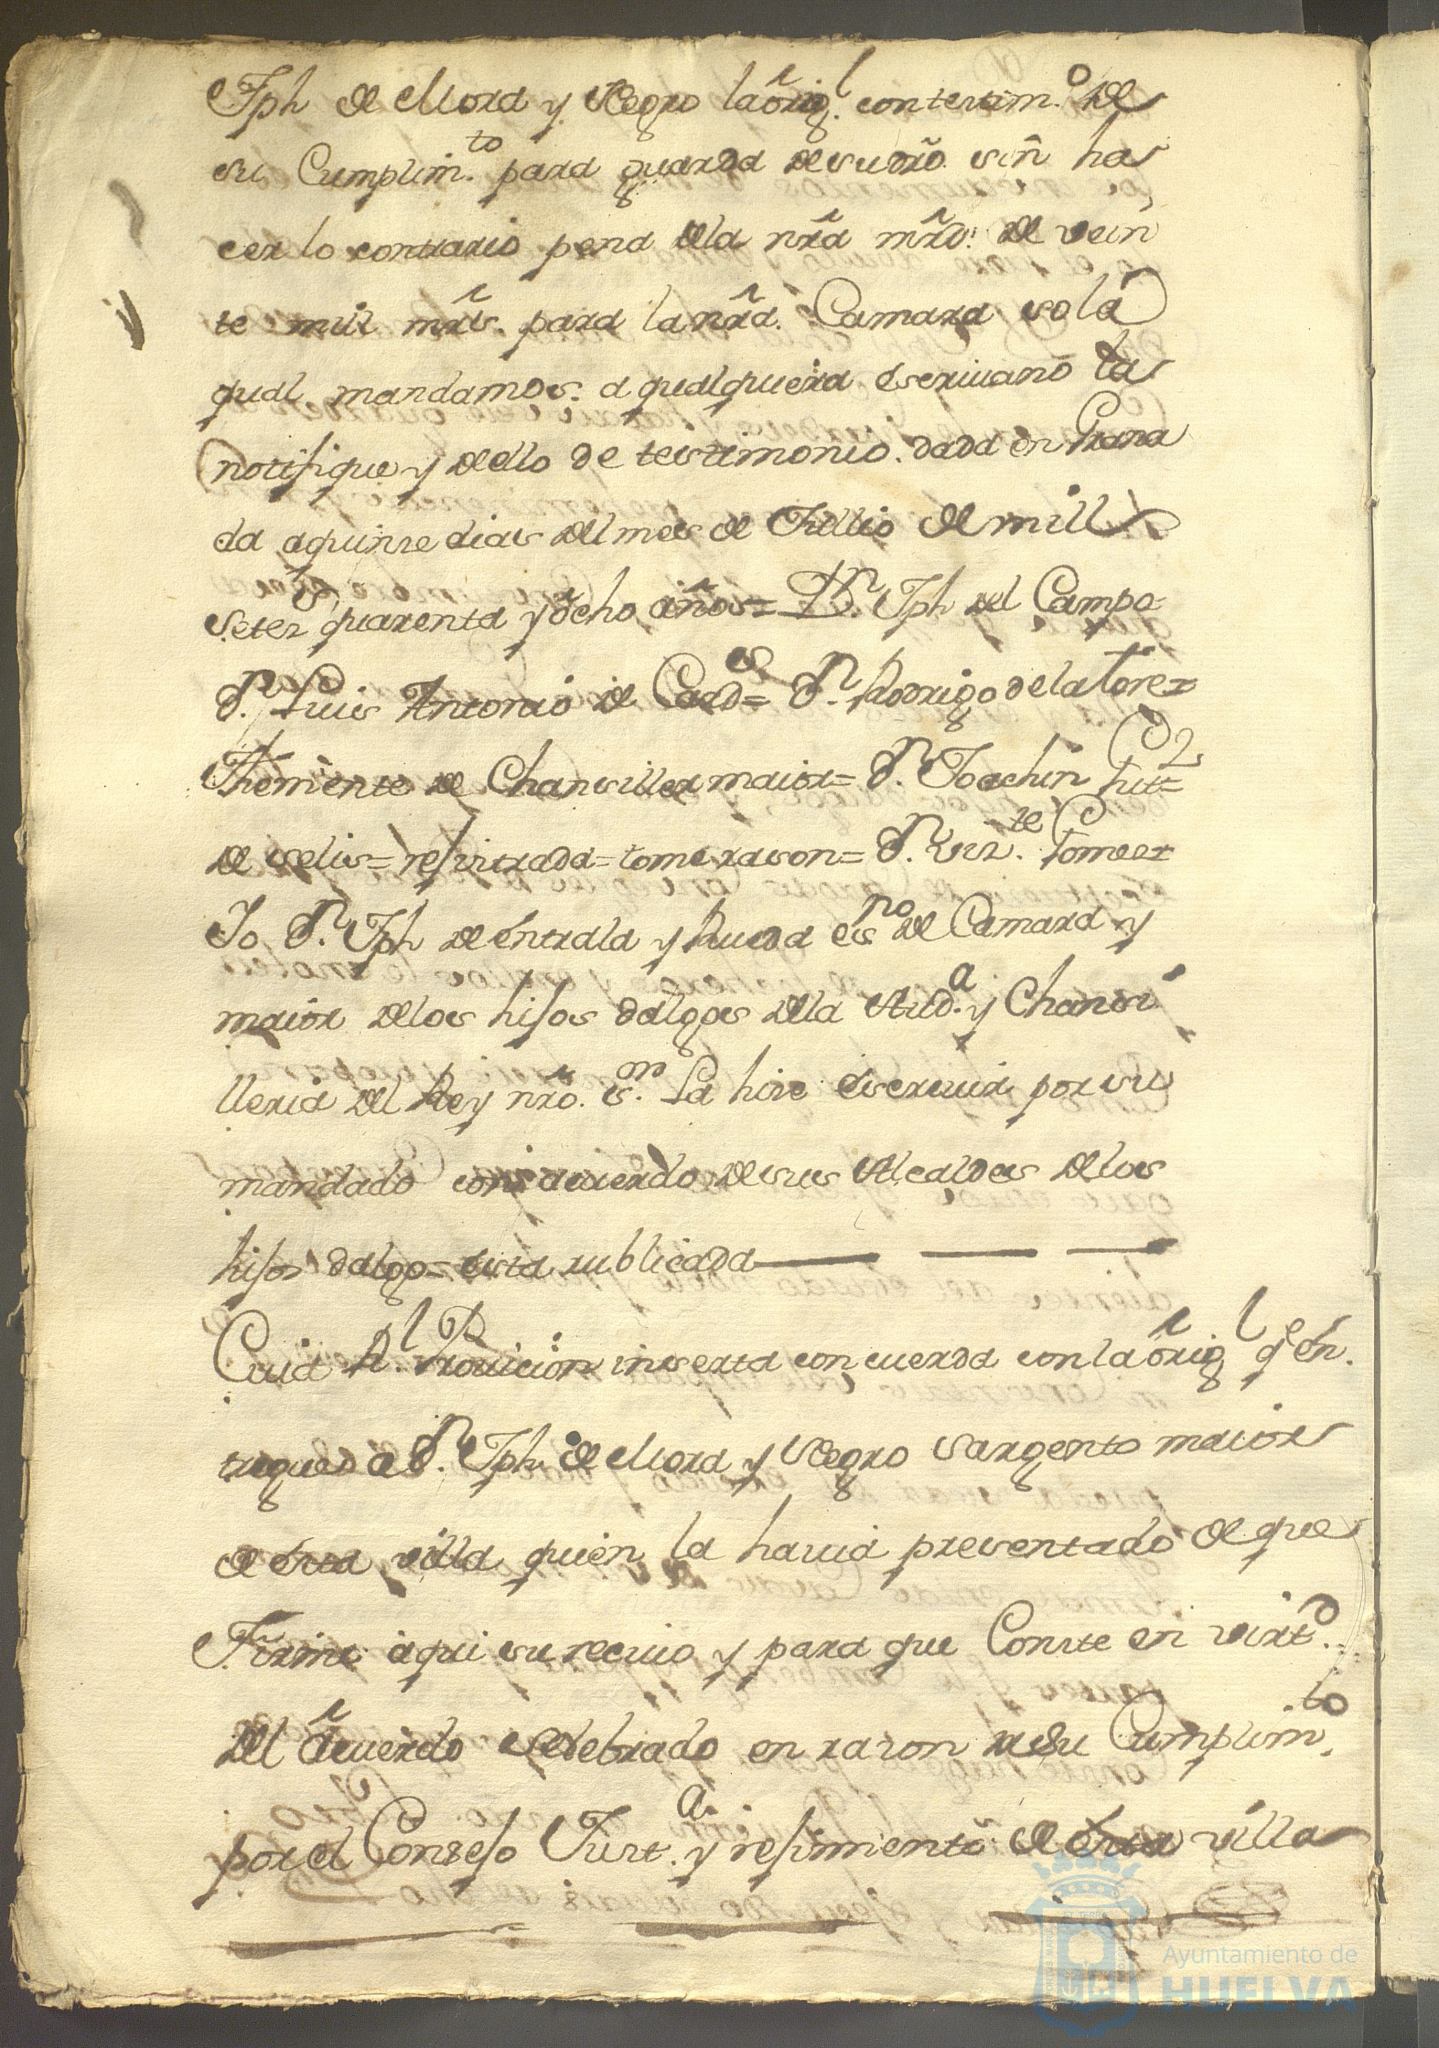 Jph de Mora y Negro la orig.l con testim.o de
su Cumplim.to para guarda de su dro. sin ha
cer lo contrario pena de la nrã mrd. de vein
te mill mrs. para la nrã. Camara so la
qual mandamos. a qualquiera escriuano la
notifique y dello de testimonio. dada en Grana
da a quinse dias del mes de Jullio de mill
setez.s quarenta y ocho años = D.n Jph del Campo
D.n Luis Antonio de = D.n Rodrigo de la Torre =
Theniente de Chansiller maior = D.n Joachin
de = rejistrada = tome rason = D.n Viz.te
Yo D.n Jph de entrala y Rueda es.no de Camara y
maior de los hijos dalgos de la Aud.a y Chansi
lleria del Rey nrõ. s.or La hise escriuir por su
mandado con acuerdo de sus Alcaldes de los
hijos dalgo = esta rublicada
Cuia R.l Prouicion inserta concuerda con la orig.l q.e en
tregue a D.n Jph de Mora y Negro Sargento maior
de esta villa quien la hauia presentado de que
Firmo aqui su reciuo y para que Conste en virt.d
del acuerdo Selebrado en razon de su Cumplim.to
por el Consejo Just.a y rejimiento de esta villa
Ayuntamiento de
HUELVA